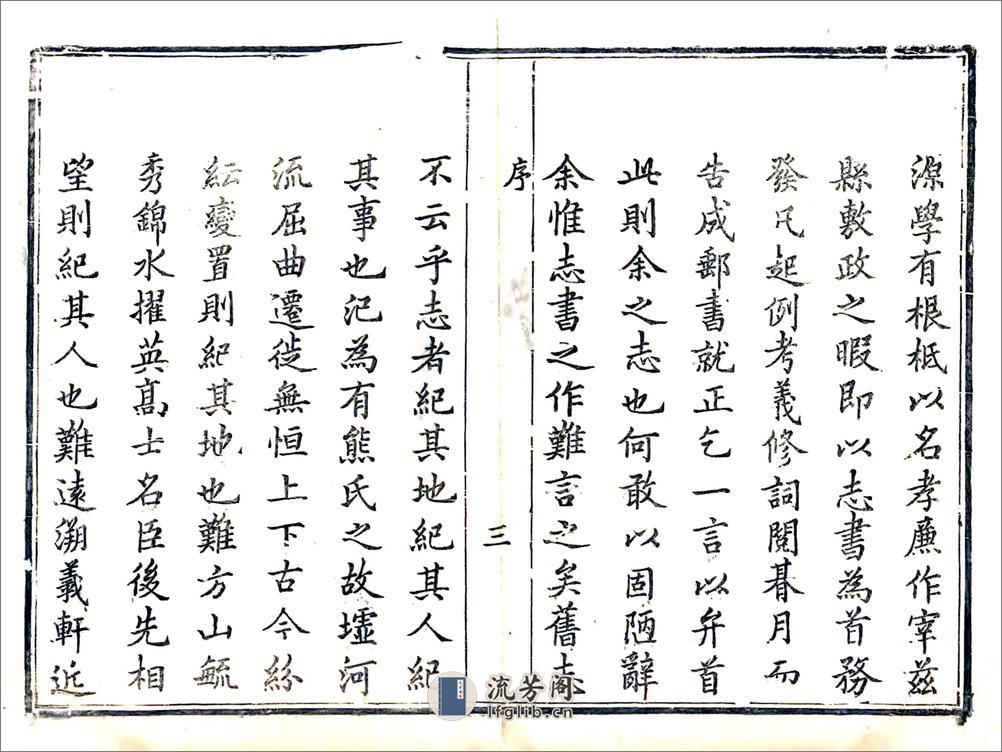 源學有根柢以名孝廉作宰茲
縣敷政之暇即以志書為首務
發凡起例考義修詞閱朞月而
告成郵書就正乞一言以弁首
此則余之志也何敢以固陋辭
余惟志書之作難言之矣舊志
序
三
不云乎志者紀其地紀其人紀
其事也氾為有熊氏之故墟河
流屈曲遷徙無恒上下古今紛
紜變置則紀其地也難方山毓
秀錦水擢英髙士名臣後先相
望則紀其人也難遠溯羲軒近
流芳阁
lfglib.cn